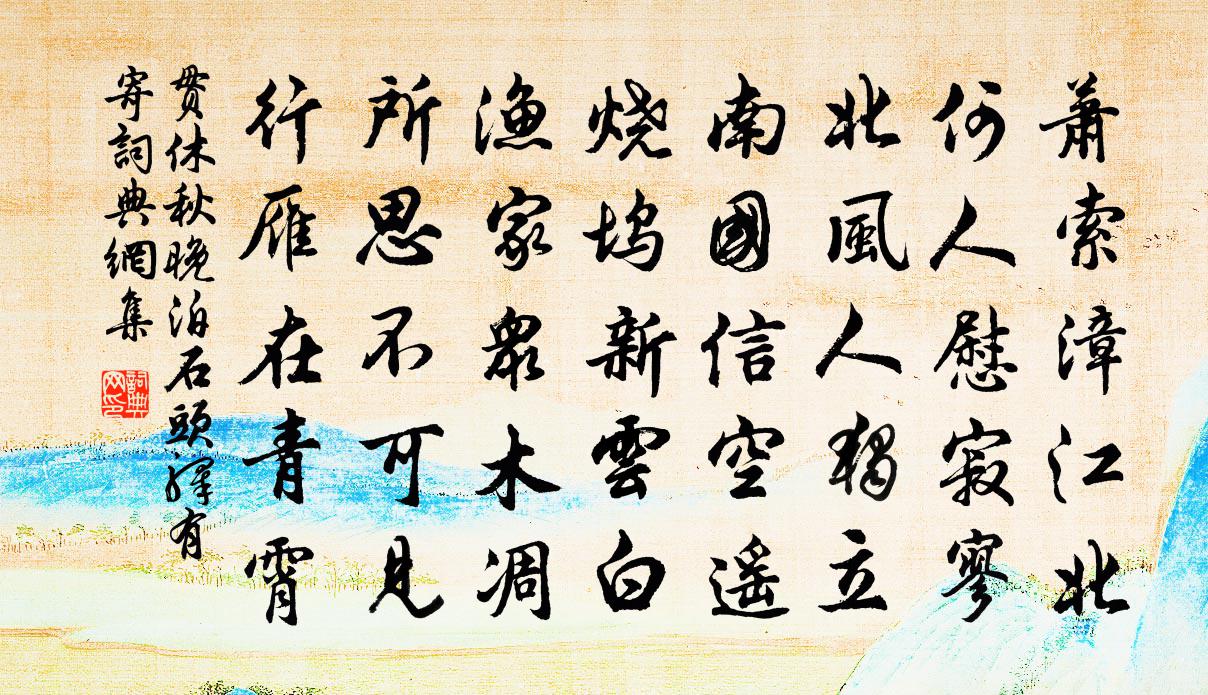 蕭索漳江北
何人慰寂寥
北風人獨立
南國信空遥
烧坞新雲白
漁家眾木凋
所思不可見
行雁在青霄
貫休秋晚泊石頭驛有
寄詞典網集
詞典
网印